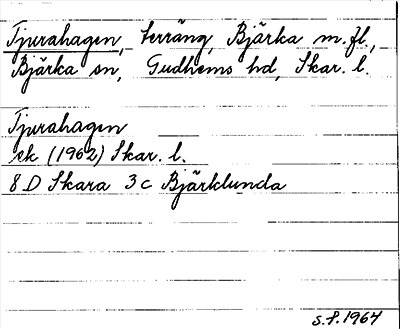 Tjurahagen, terräng, Bjärka m.fl.,
Bjärka sn, Gudhems hd, Skar. l.
Tjurahagen
ek (1962) Skar. l.
8 D Skara 3 c Bjärklunda
S.F. 1964